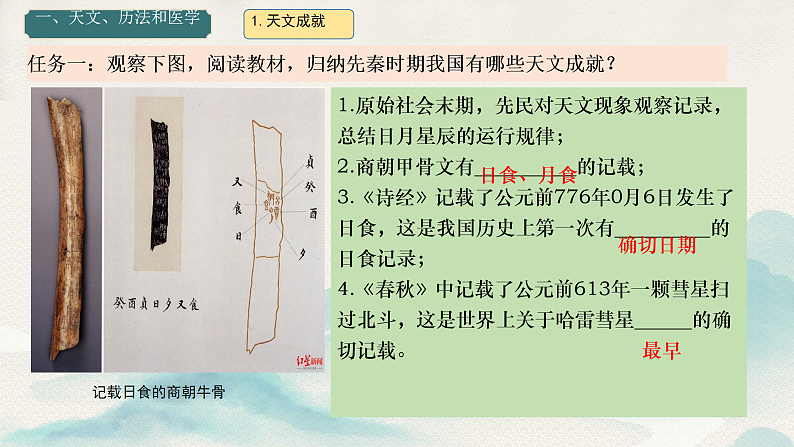 一、天文、历法和医学
1. 天文成就
任务一：观察下图，阅读教材，归纳先秦时期我国有哪些天文成就？
贞
癸
又
食
酉
日
夕
癸酉貞日夕又食
红星新闻
记载日食的商朝牛骨
1.原始社会末期，先民对天文现象观察记录，
总结日月星辰的运行规律；
2.商朝甲骨文有日食、月食的记载；
3.《诗经》记载了公元前776年0月6日发生了
日食，这是我国历史上第一次有__________的
确切日期
日食记录；
4.《春秋》中记载了公元前613年一颗彗星扫
过北斗，这是世界上关于哈雷彗星______的确
切记载。
最早